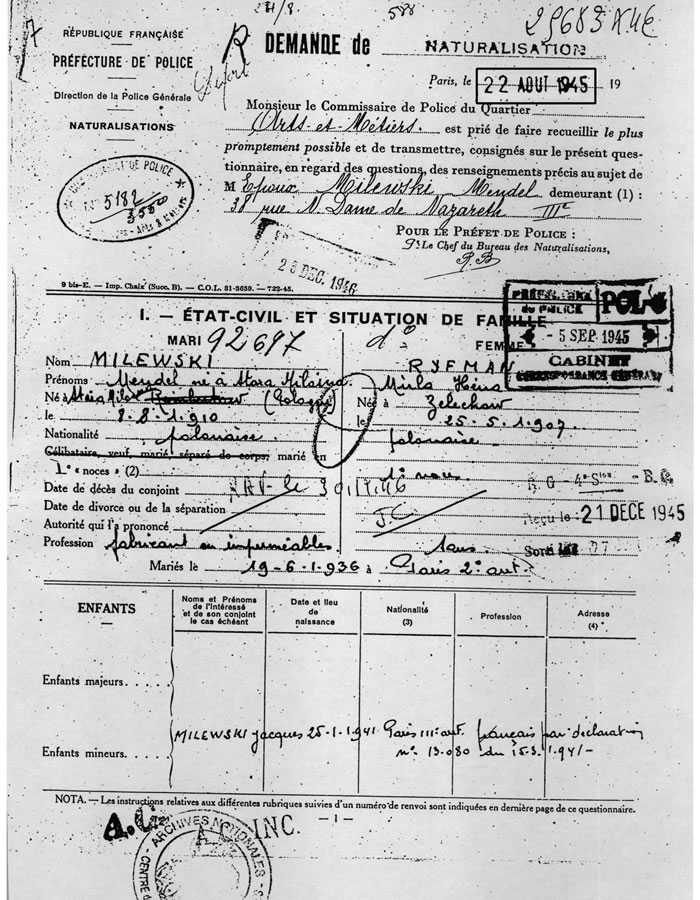 29683 X 46
588
RÉPUBLIQUE FRANÇAISE
PRÉFECTURE DE POLICE
Direction de la Police Générale
NATURALISATIONS
DEMANDE de NATURALISATION
Paris, le 22 AOUT 1945 19
Monsieur le Commissaire de Police du Quartier
Arts-et-Métiers. est prié de faire recueillir le plus
promptement possible et de transmettre, consignés sur le présent ques-
tionnaire, en regard des questions, des renseignements précis au sujet de
M Epoux Milewski Mendel demeurant (1) :
38 rue N. Dame de Nazareth IIIe
POUR LE PRÉFET DE POLICE :
Le Chef du Bureau des Naturalisations,
DE POLICE
No 5182
3580
ARTS & MÉTIERS
23 DEC. 1946
9 bis-E. — Imp. Chaix (Succ. B). — C.O.L. 31-3659. — 722-45.
PRÉFECTURE du POLICE
- 5 SEP 1945
CABINET
CORRESPONDANCE GÉNÉRALE
I. — ÉTAT-CIVIL ET SITUATION DE FAMILLE
MARI 92697 do FEMME
Nom MILEWSKI RYFMAN
Prénoms Mendel né à Stara Milosna Mirla
Né à (Pologne) Née à Zelechow
le 8.8.1910 le 25.5.1907
Nationalité polonaise polonaise
Célibataire, veuf, marié, séparé de corps, marié en
1e « noces » (2)
Date de décès du conjoint
Date de divorce ou de la séparation
Reçu le : 21 DECE 1945
Autorité qui l'a prononcé
Profession fabricant en imperméables sans
Mariés le 19-6-1936 à Paris 2e arrt.
ENFANTS
Noms et Prénoms de l'intéressé et de son conjoint le cas échéant
Date et lieu de naissance
Nationalité (3)
Profession
Adresse (4)
Enfants majeurs. . . . .
MILEWSKI Jacques 25-1-1941 Paris III arrt. français par déclaration
Enfants mineurs. . . . . no 13.080 du 15.3.1941-
NOTA. — Les instructions relatives aux différentes rubriques suivies d'un numéro de renvoi sont indiquées en dernière page de ce questionnaire.
— 1 —
INC.
ARCHIVES NATIONALES